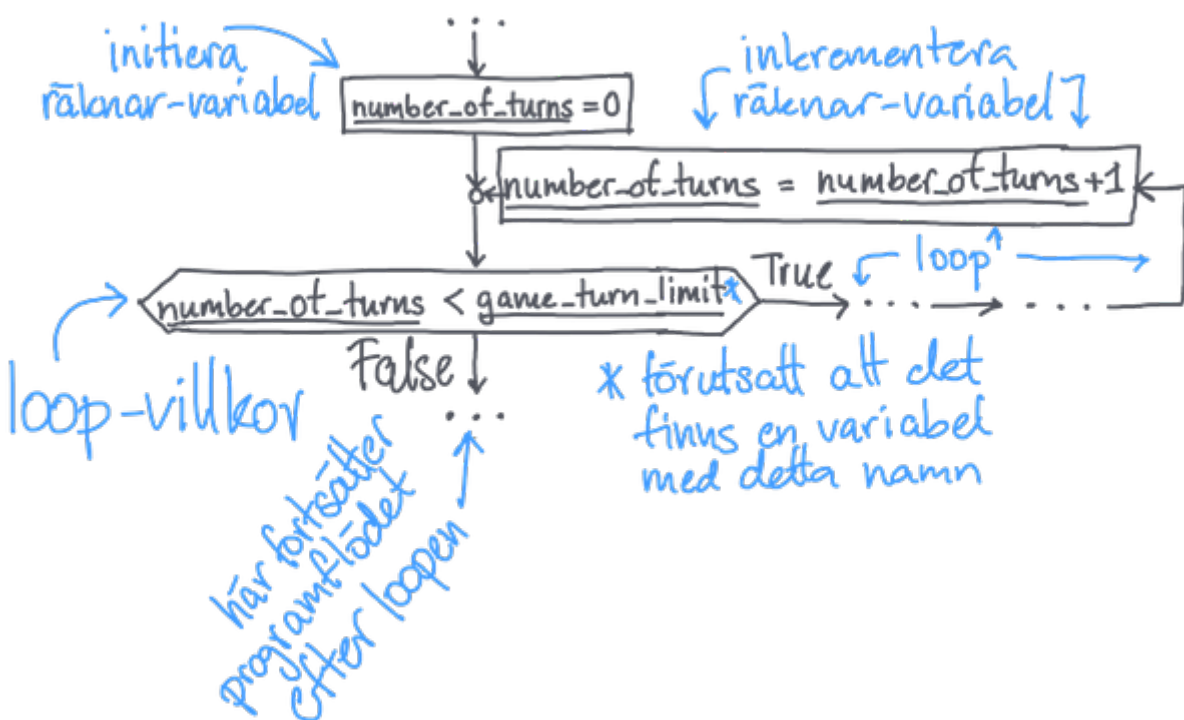 ...
initiera
räknar-variabel
number_of_turns = 0
inkrementera
räknar-variabel
number_of_turns = number_of_turns + 1
loop
number_of_turns < game_turn_limit*
True
... ...
False
...
loop-villkor
* förutsatt att det
finns en variabel
med detta namn
här fortsätter
programflödet
efter loopen